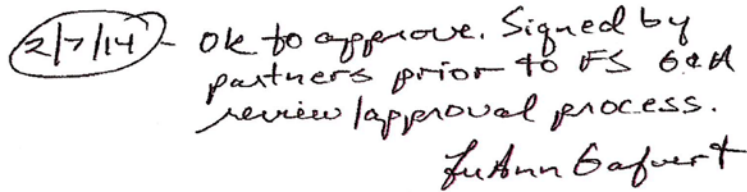 2/7/14 - Ok to approve. Signed by
partners prior to FS G&A
review/approval process.
LuAnn Gafvert